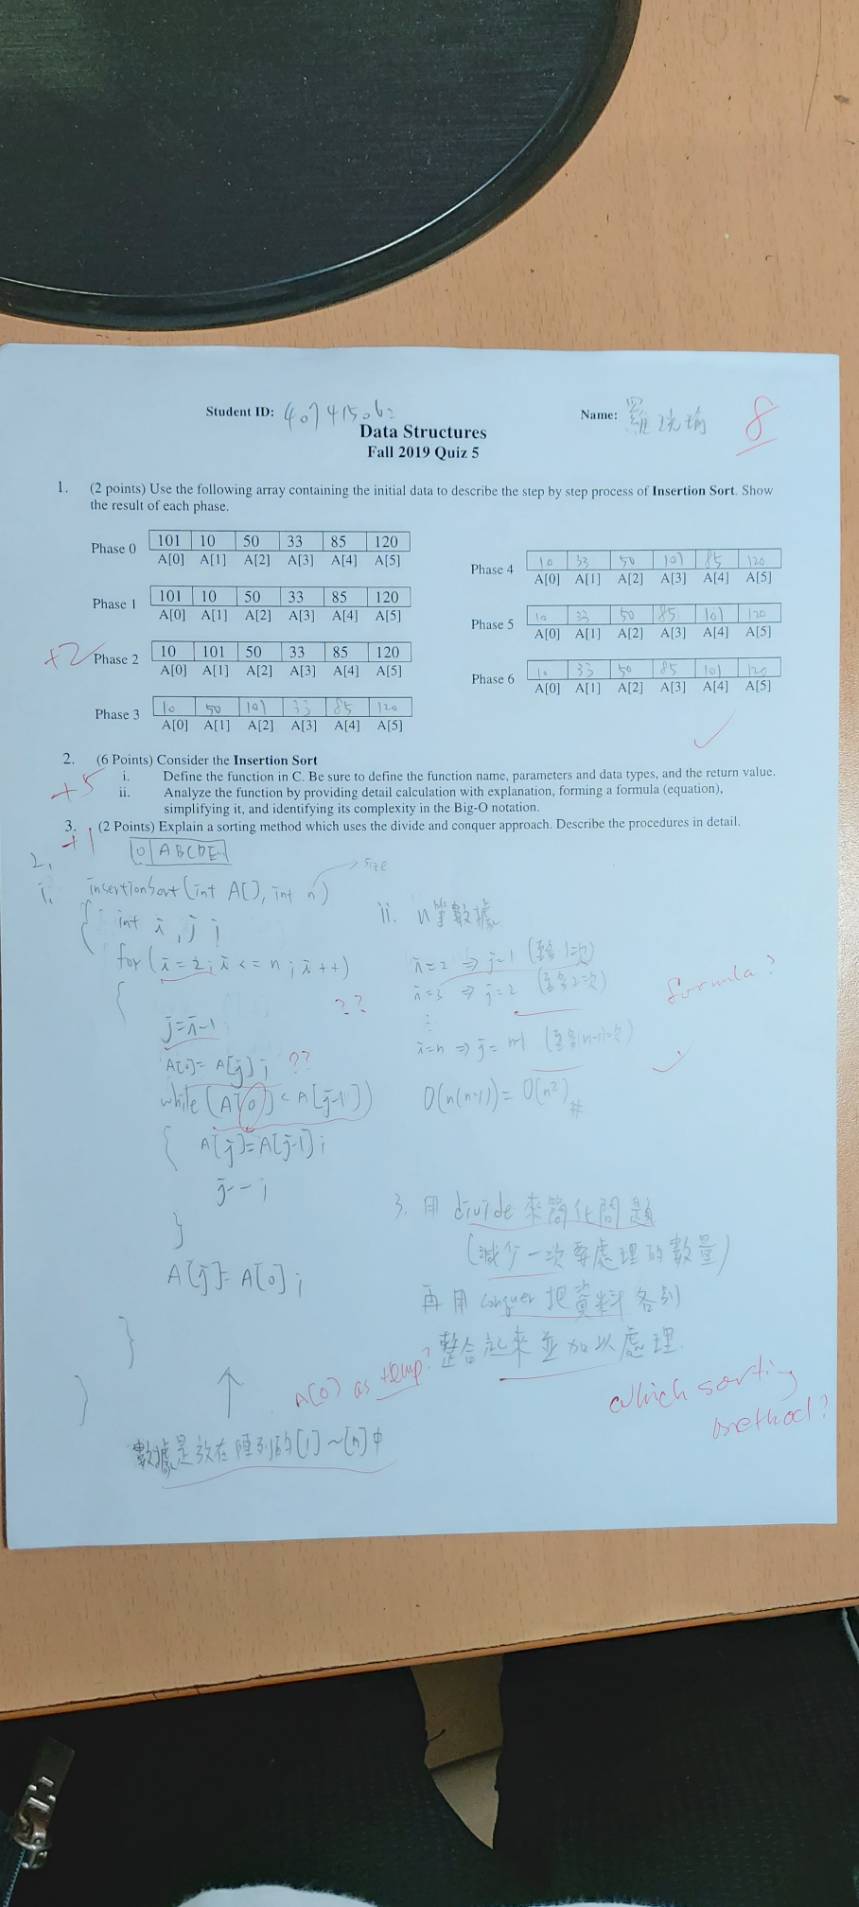 Student ID:
Name:
8
Data Structures
Fall 2019 Quiz 5
1. (2 points) Use the following array containing the initial data to describe the step by step process of Insertion Sort. Show
the result of each phase.
Phase 0 101 10 50 33 85 120
A[0] A[1] A[2] A[3] A[4] A[5]
Phase 1 101 10 50 33 85 120
A[0] A[1] A[2] A[3] A[4] A[5]
+2
Phase 2 10 101 50 33 85 120
A[0] A[1] A[2] A[3] A[4] A[5]
Phase 3 10 50 101 33 85 120
A[0] A[1] A[2] A[3] A[4] A[5]
Phase 4 10 33 50 101 85 120
A[0] A[1] A[2] A[3] A[4] A[5]
Phase 5 10 33 50 85 101 120
A[0] A[1] A[2] A[3] A[4] A[5]
Phase 6 10 33 50 85 101 120
A[0] A[1] A[2] A[3] A[4] A[5]
2. (6 Points) Consider the Insertion Sort
+5
i. Define the function in C. Be sure to define the function name, parameters and data types, and the return value.
ii. Analyze the function by providing detail calculation with explanation, forming a formula (equation),
simplifying it, and identifying its complexity in the Big-O notation.
3. (2 Points) Explain a sorting method which uses the divide and conquer approach. Describe the procedures in detail.
+1
0 ABCDE
2.
size
i. insertionSort(int A[], int n)
{ int i, j;
for (i=2; i<=n; i++)
{
??
j=i-1
A[0]= A[j]; ??
while (A[0] < A[j-1])
{ A[j]=A[j-1];
j--;
}
A[j]= A[0];
}
}
A[0] as temp?
數據是放在陣列的[1]~[n]中
ii. n筆數據
i=2 ⇒ j=1 (1次)
i=3 ⇒ j=2 (2次)
⋮
i=n ⇒ j=n-1
formula?
O(n(n-1)) = O(n²)#
3. 用 divide 來簡化問題
(減少一次要處理的數量)
再用 conquer 把資料各別
整合起來並加以處理.
which sorting
method?